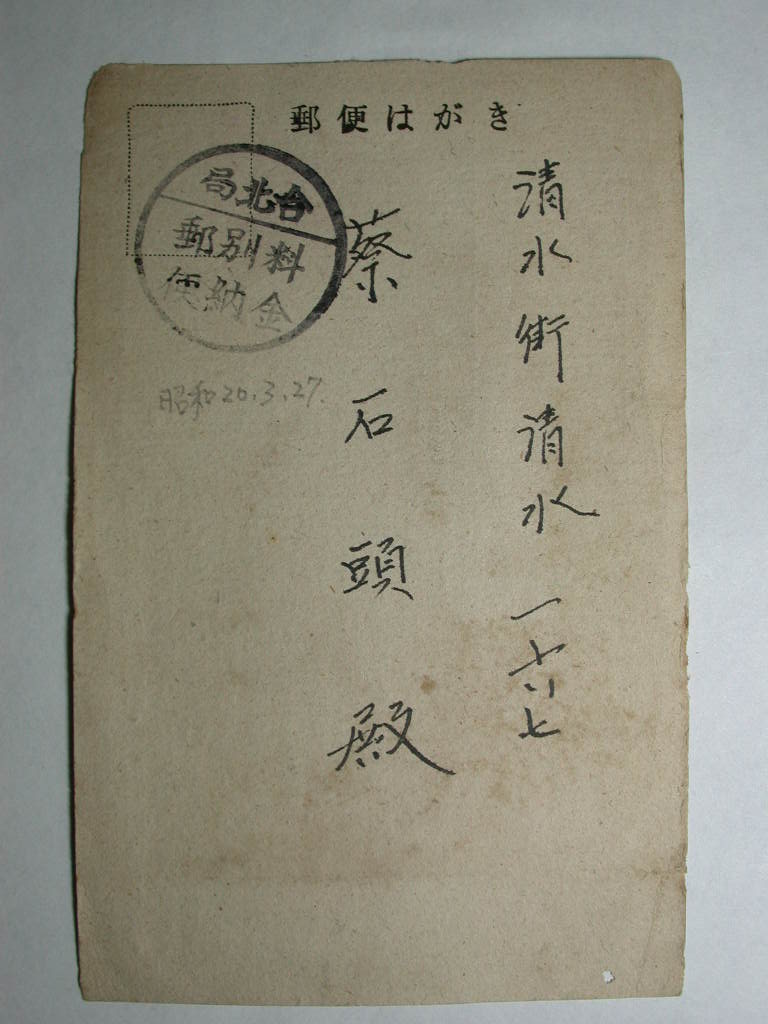 郵便はがき
清水街清水一六七
蔡石頭殿
台北局
料金
別納
郵便
昭和20.3.27.